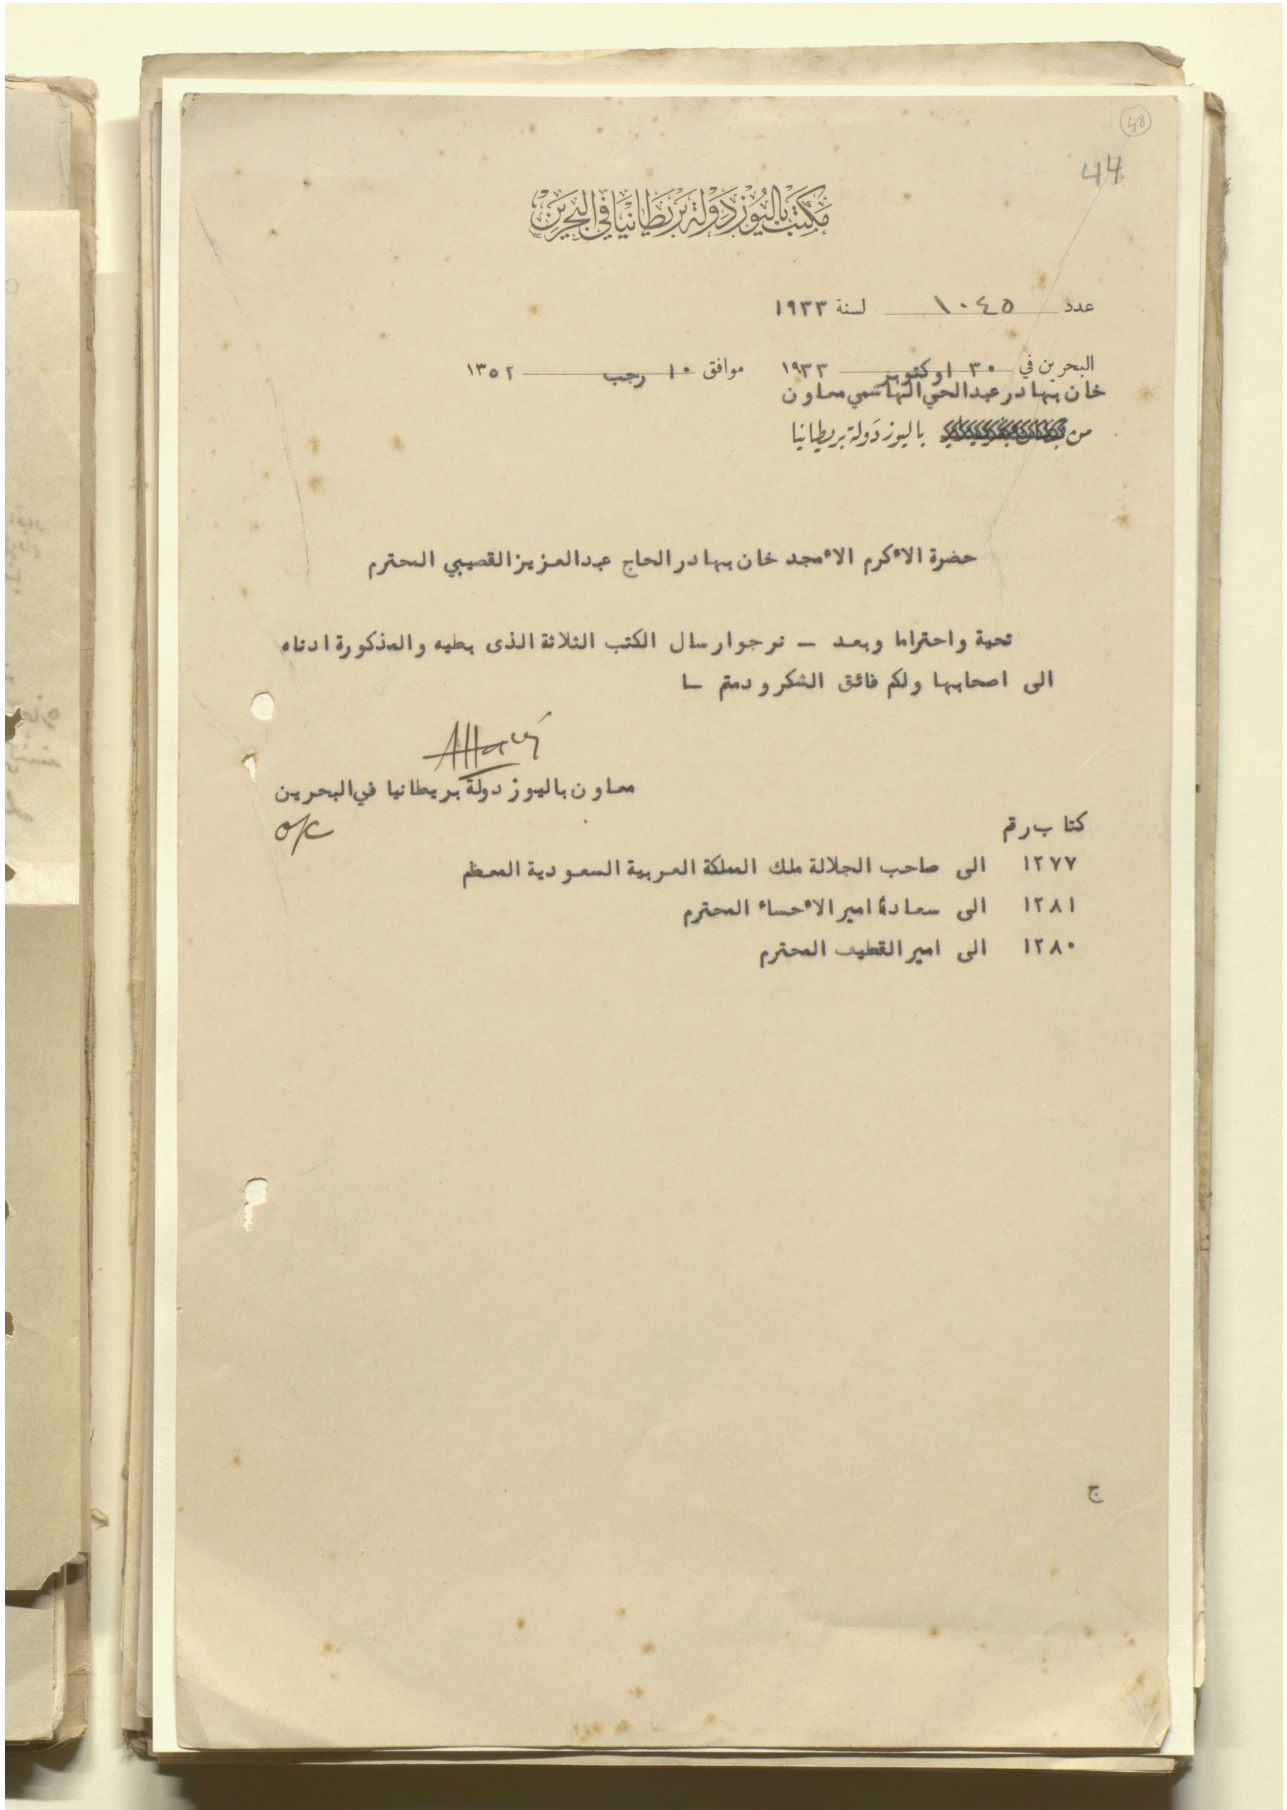 48
44
مكتب باليوز دولة بريطانيا في البحرين
عدد ١٠٤٥ لسنة ١٩٣٣
البحرين في ٣٠ اوكتوبر ١٩٣٣ موافق ١٠ رجب ١٣٥٢
خان بهادر عبدالحي الهاشمي معاون
من باليوز دولة بريطانيا
حضرة الاٴكرم الاٴمجد خان بهادر الحاج عبدالعزيز القصيبي المحترم
تحية واحتراما وبعد — نرجو ارسال الكتب الثلاثة الذى بطيه والمذكورة ادناه
الى اصحابها ولكم فائق الشكر ودمتم
معاون باليوز دولة بريطانيا في البحرين
o/c
كتاب رقم
١٢٧٧ الى صاحب الجلالة ملك المملكة العربية السعودية المعظم
١٢٨١ الى سعادة امير الاٴحساء المحترم
١٢٨٠ الى امير القطيف المحترم
ج